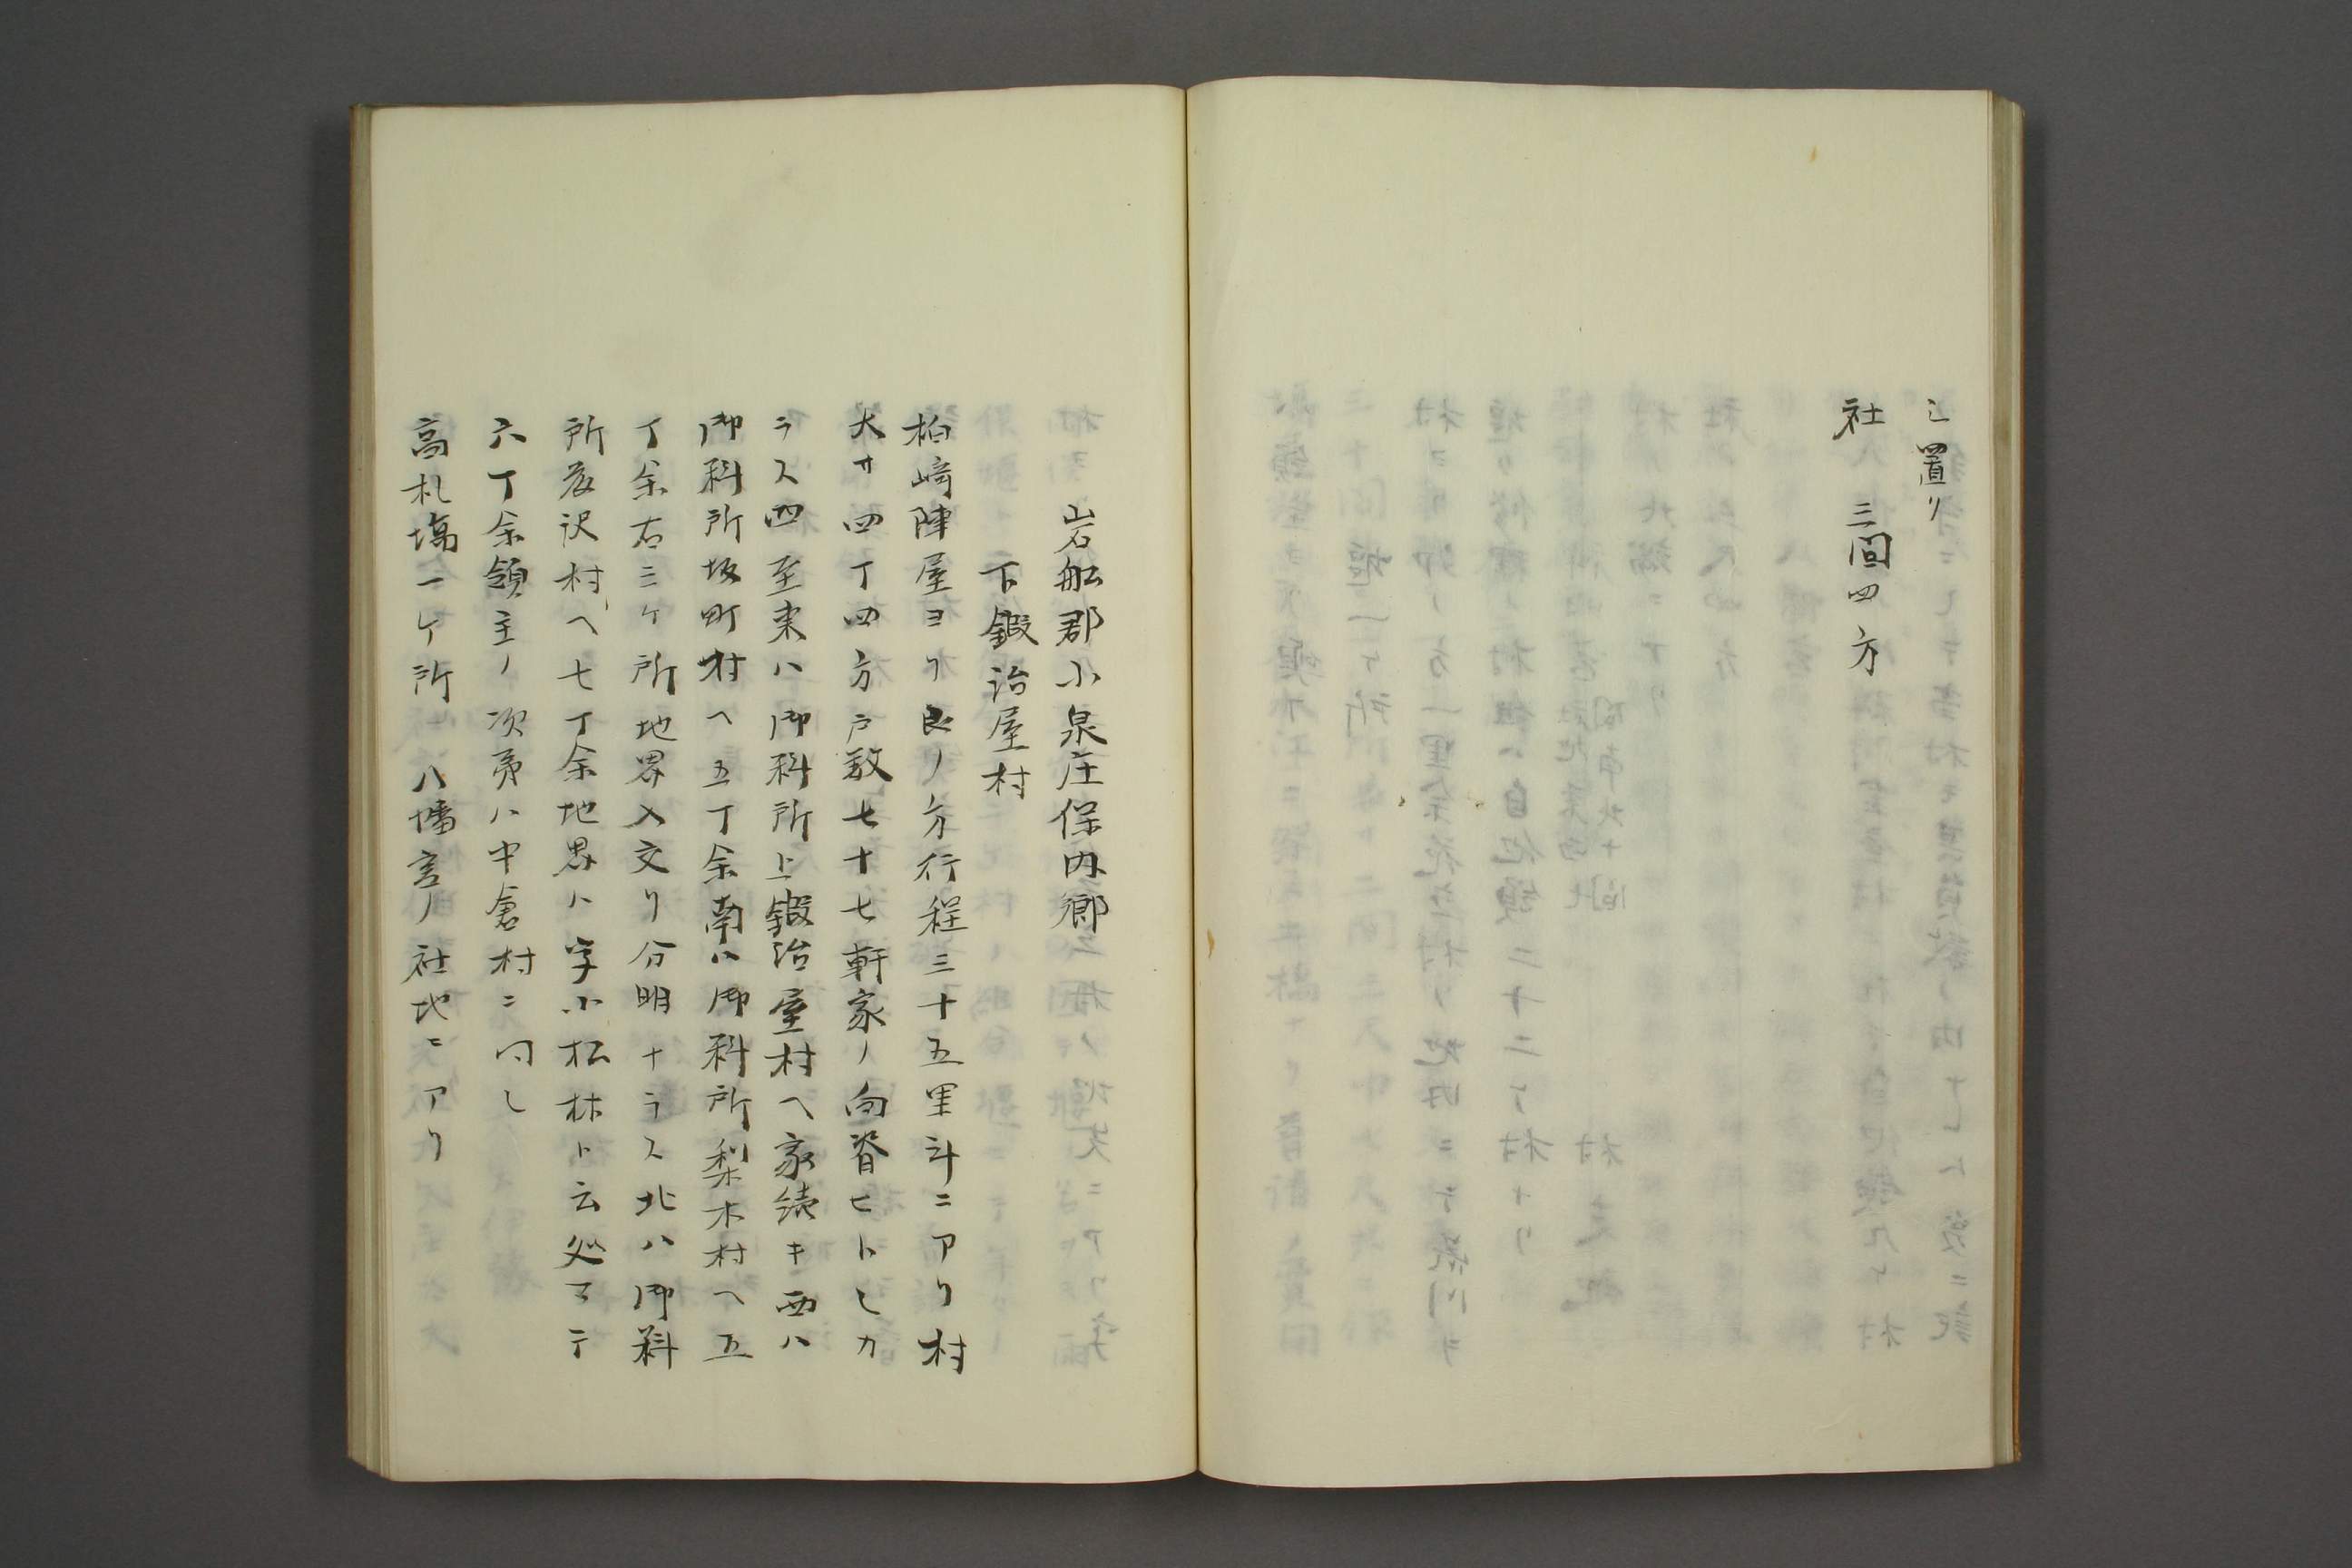 シ置リ
社　三間四方
岩舩郡小泉庄保内郷
下鍛治屋村
柏﨑陣屋ヨリ艮ノ方行程三十五里斗ニアリ村
大サ四丁四方戸数七十七軒家ノ向脊ヒトシカ
ラス四至東ハ御料所上鍛治屋村ヘ家続キ西ハ
御料所坂町村ヘ五丁余南ハ御料所梨木村ヘ五
丁余右三ケ所地界入交リ分明ナラス北ハ御料
所荒沢村ヘ七丁余地界ハ字小松林ト云処マテ
六丁余領主ノ次第ハ中倉村ニ同シ
高札塲一ケ所　八幡宮ノ社地ニアリ